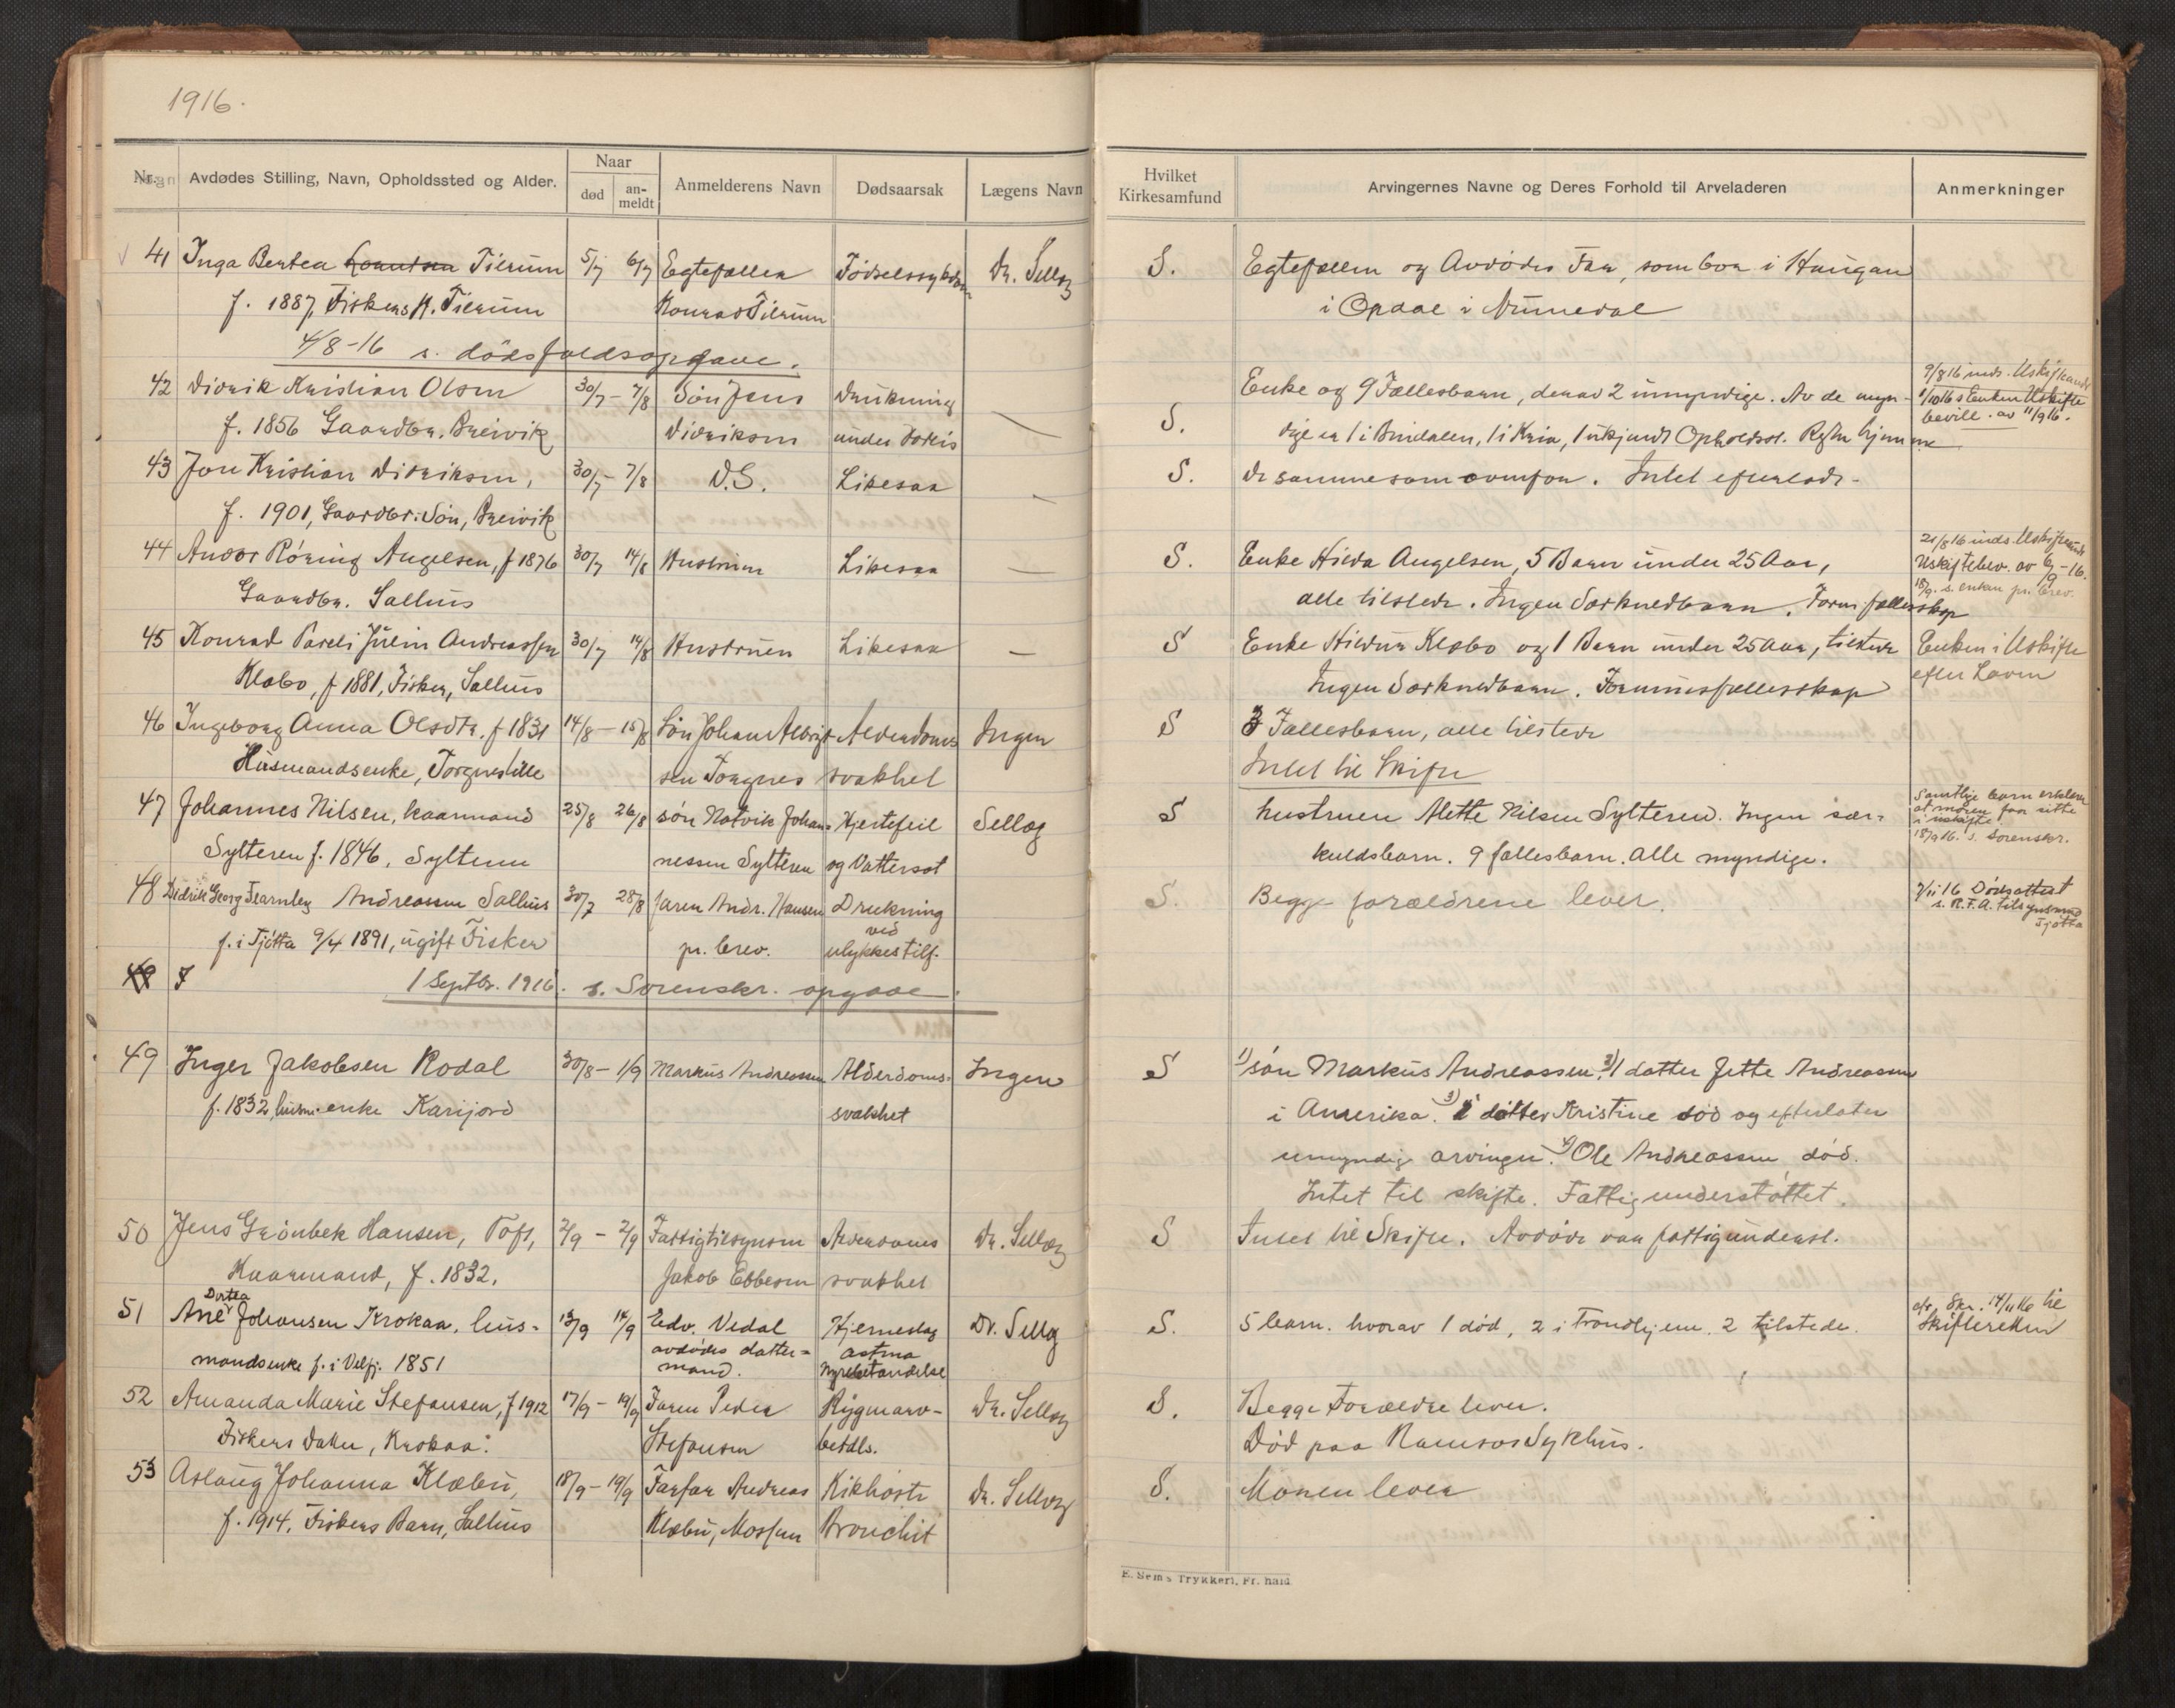 1916.
Nr.
Avdødes Stilling, Navn, Opholdssted og Alder.
Naar
død
an-
meldt
Anmelderens Navn
Dødsaarsak
Lægens Navn
Hvilket
Kirkesamfund
Arvingernes Navne og Deres Forhold til Arveladeren
Anmerkninger
41 Inga Bertea Tilrum 5/7 6/7 Egtefællen Fødselssykdom Dr. Selløg S. Egtefællen og Avdødes Far, som bor i Haugan
f. 1887, Fiskers K. Tilrum Konrad Tilrum i Opdal i Numedal
4/8-16 s. dødsfaldsopgave.
42 Didrik Kristian Olsen 30/7 - 7/8 Søn Jens Drukning S. Enke og 9 Fællesbarn, derav 2 umyndige. Av de myn-
f. 1856 Gaardbr. Breivik Didriksen under Fiskis dige er 1 i Bindalen, 1 i Kria, 1 ukjendt Opholdsst. Resten hjemme
9/8 16 inds. Uskifteands
1/10 16 s Enken Uskifte
bevill. av 11/9 16.
43 Jon Kristian Didriksen, 30/7 - 7/8 D.S. Likesaa S. De samme som ovenfor. Intet efterladt.
f. 1901, Gaardbr. Søn, Breivik
44 Anvor Röring Angelsen, f 1876 30/7 14/8 Hustruen Likesaa S. Enke Hilda Angelsen, 5 Barn under 25 Aar,
Gaardbr. Salhus alle tilstede. Ingen Særkuldbarn. Form.fællesskap
21/8 16 inds. Uskifteands
Uskiftebev. av 6/9 - 16.
18/9. s. enkan pr. brev.
45 Konrad Pareli Julin Andreassen 30/7 14/8 Hustruen Likesaa S Enke Hildur Klæbo og 1 Barn under 25 Aar, tilstede Enken i Uskifte
Klæbo, f 1881, Fisker, Salhus Ingen Særkuldbarn. Formuesfællesskap efter Loven
46 Ingeborg Anna Olsdtr. f 1831 14/8 - 15/8 Søn Johan Albrigt Alderdoms Ingen S 3 Fællesbarn, alle tilstede
Husmandsenke, Torgnestille sen Torgnes svakhet Intet til Skifte
47 Johannes Nilsen, kaarmand 25/8 26/8 søn Hotvik Johan- Hjertefeil Selløg S hustruen Mette Nilsen Sylteren. Ingen sær-
Sylteren f. 1846, Sylteren nessen Sylteren og Vattersot kuldsbarn. 9 fællesbarn. alle myndige.
Samtlige barn erklær
at moren faar sitte
i uskifte
18/9 16. s. Sorenskr.
48 Didrik Georg Fearnley Andreassen Salhus 30/7 28/8 faren Andr. Hansen Drukning S. Begge forældrene lever.
f. i Tjötta 9/4 1891, ugift Fisker pr. brev. ved
ulykkestilf.
7/11 16 Dödsattest
s. R.F.A. tilsynsmd
Tjøtta
49
1 Septbr. 1916. s. Sorenskr. opgave.
49 Inger Jakobsen Rodal 30/8 - 1/9 Markus Andreassen Alderdoms- Ingen S 1) søn Markus Andreassen, 2) 1 datter Jette Andreassen
f. 1832, husm. enke Karijord svakhet i Amerika. 3) datter Kristine død og efterlater
umyndig arvinger. 4) Ole Andreassen, død.
Intet til skifte. Fattigunderstøttet.
50 Jens Grønbek Hansen, Toft, 2/9 - 2/9 Fattigtilsynsm Alderdoms Dr. Selløg S Intet til Skifte. Avdøde var fattigunderst.
Kaarmand, f. 1832. Jakob Ebbesen svakhet
51 Ane Dortea Johansen Krokaa, hus- 13/9 14/9 Edv. Vedal Hjerneslag Dr. Selløg S. 5 barn. hvorav 1 død, 2 i Trondhjem. 2 tilstede.
mandsenke f. i Velfj. 1851 avdødes datter- astma
mand. Nyrebetændelse
afs. Skr. 14/11 16 til
Skifteretten
52 Amanda Marie Stefansen, f 1912 17/9 - 19/9 Faren Peder Rygmarv- Dr. Selløg S. Begge Forældre lever.
Fiskers Datter, Krokaa. Stefansen betds. Død paa Namsos Sykhus.
53 Aslaug Johanna Klæbu, 18/9 - 19/9 Farfar Andreas Kikhoste Dr. Selløg S. Moren lever
f. 1914. Fiskers Barn, Salhus Klæbu, Mosseen Bronchit
E. Sem's Trykkeri, Fr. hald